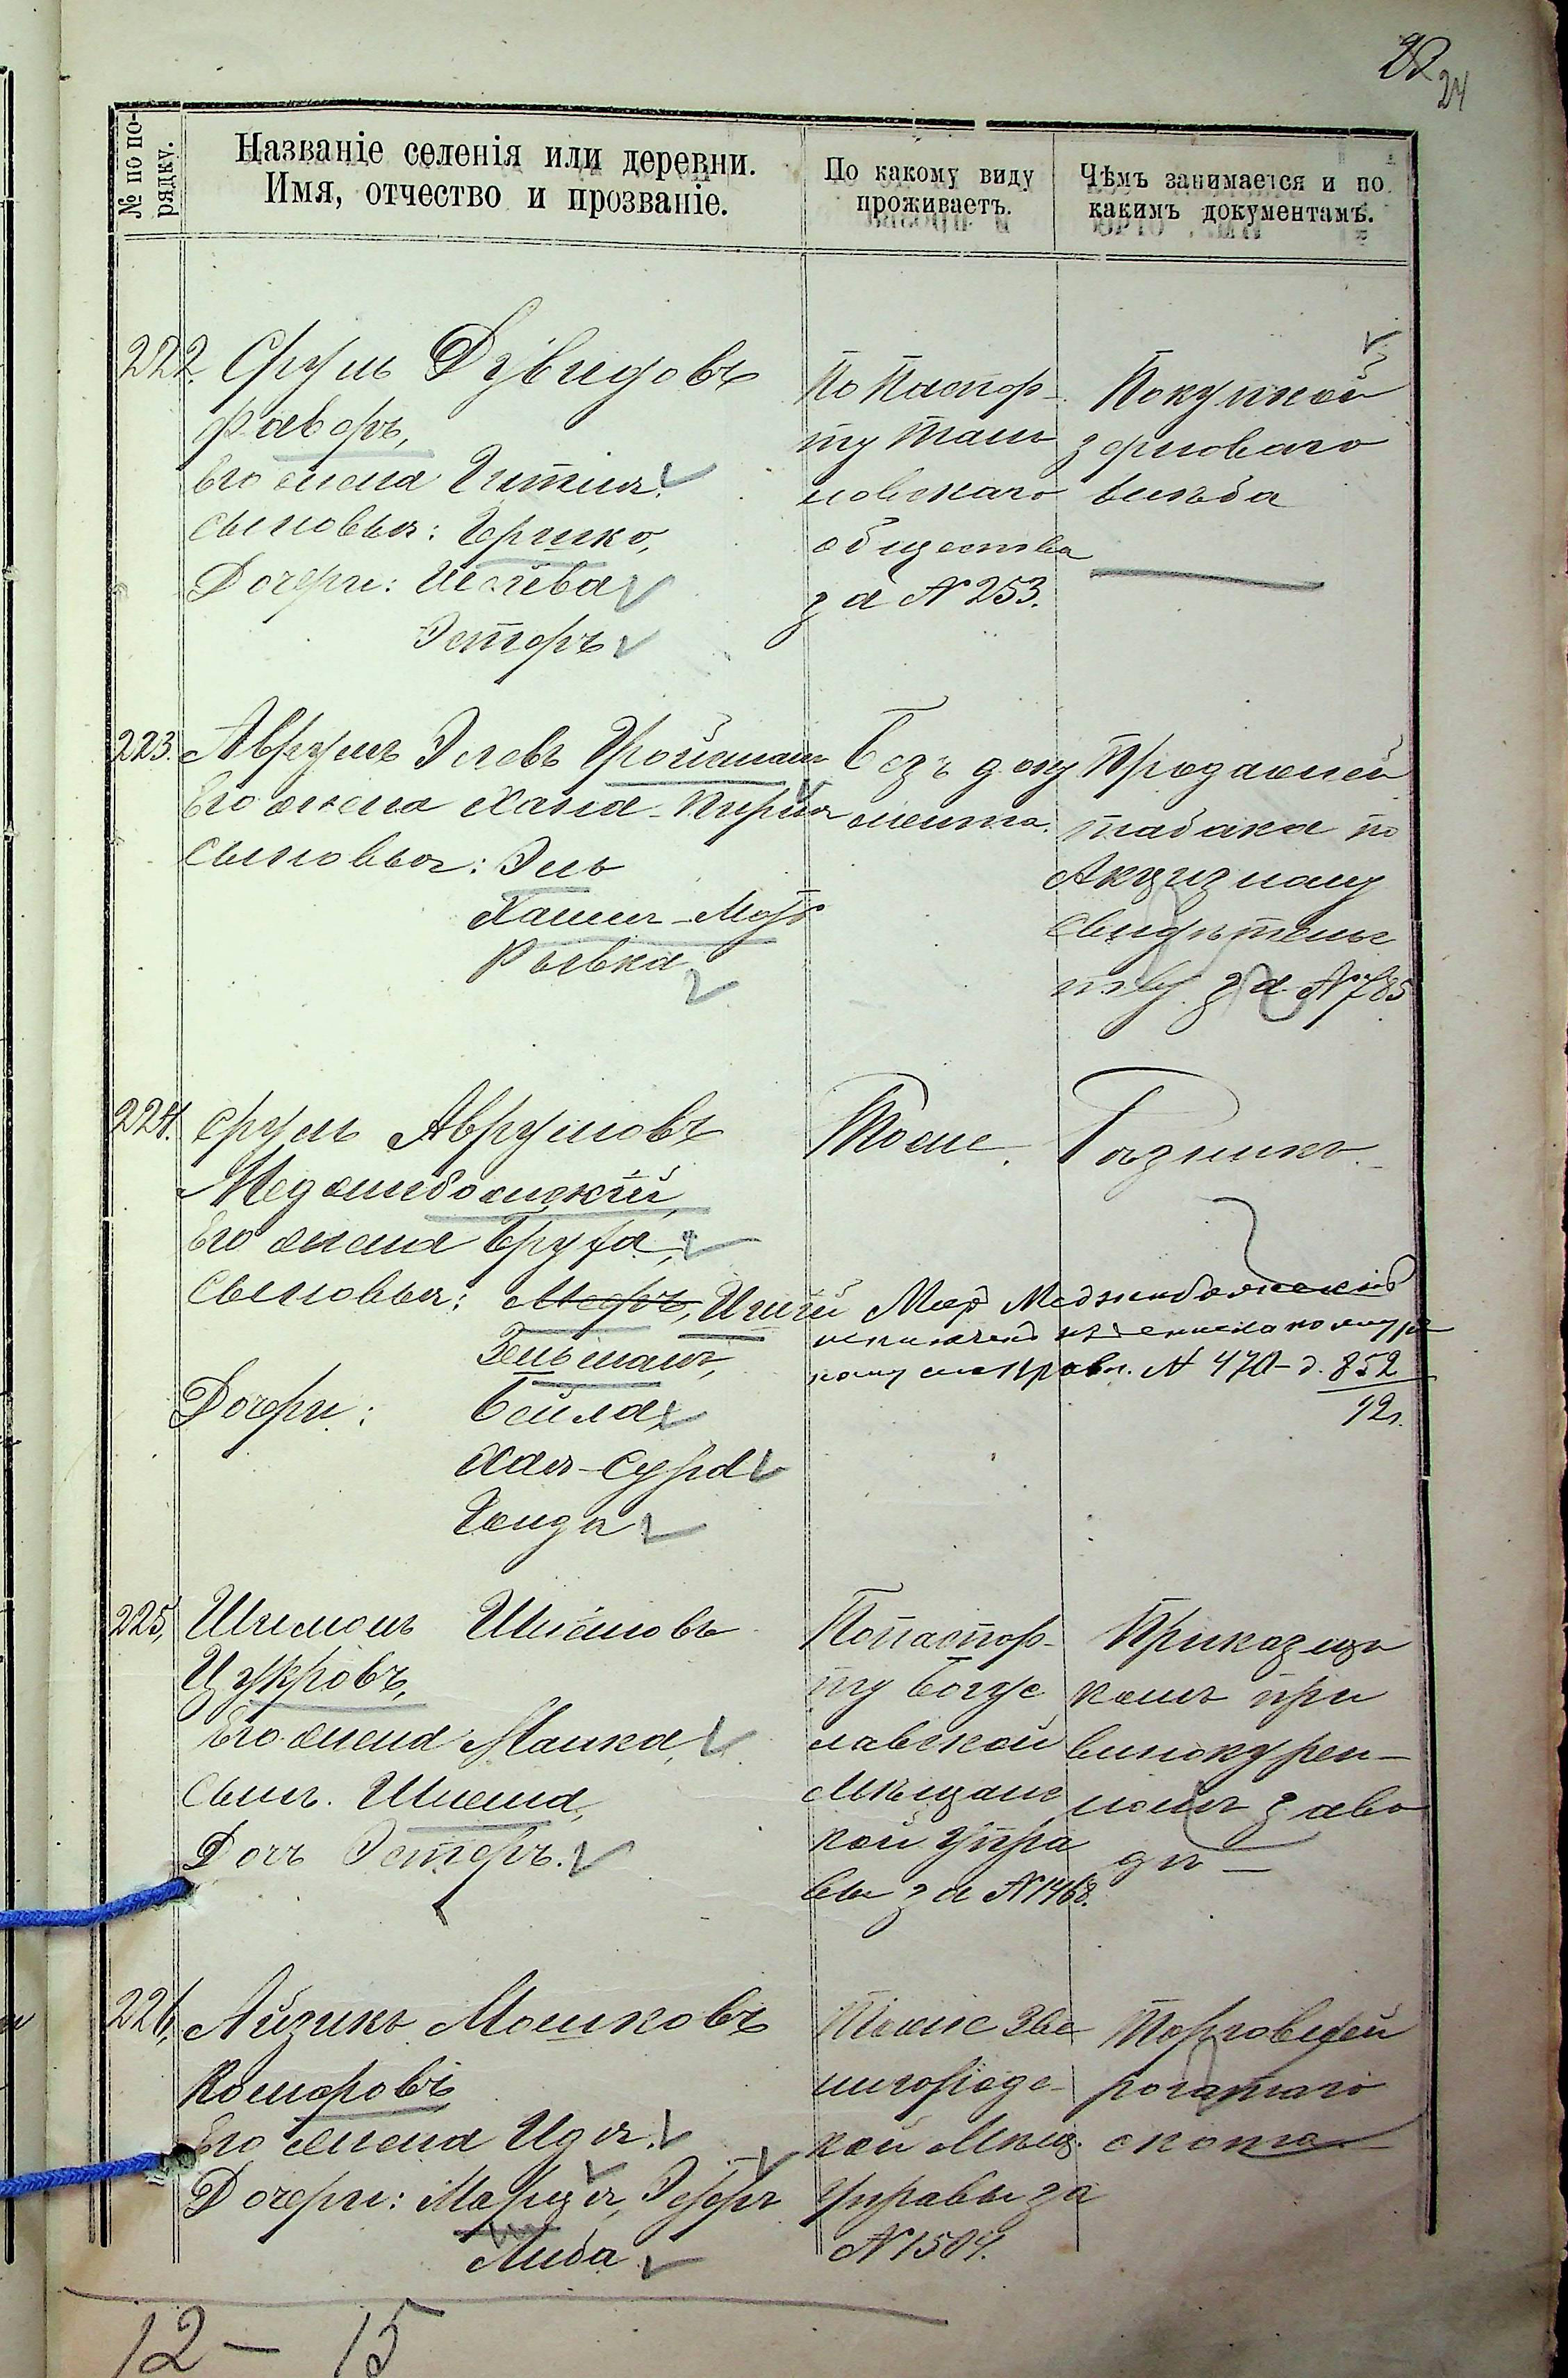 22
24
№ по по-
рядку.
Названіе селенія или деревни.
Имя, отчество и прозваніе.
По какому виду
проживаетъ.
Чѣмъ занимается и по
какимъ документамъ.
222. Сруль Дувидовъ
Фаворъ,
Его жена Гитля
Сыновья: Гершко,
Дочери:
Эстеръ
По Паспор-
ту Таль
новскаго
общества
за № 253.
Покупкой
зерноваго
хлѣба
223. Аврумъ Элевъ Гройсманъ
Его жена Хана-Перля
Сыновья: Эль
Хаимъ-
Рывка
Безъ доку
мента.
Продажей
табака по
Акцизному
Свидѣтельс
тву за № 785
224. Сруль Аврумовъ
Меджибожскій,
Его жена Бруха,
Сыновья: Мееръ,
Зельманъ,
Дочери: Бейла
Хая-Сура
Генда
Тоже.
Рѣзникъ.
Меер Меджибожский
исключенъ изъ списка по
№ 470 - д. 852
12 г.
225, Шлемонъ
Цукровъ,
Его жена Малка,
Сынъ. Шлема,
Дочь Эстеръ.
По паспор-
ту Богус
лавской
Мѣщанс
кой Упра
вы за № 1468.
Приказщи
комъ при
винокурен-
номъ заво
дѣ —
226, Айзикъ Мошковъ
Комаровъ
Его жена Идя.
Дочери: Эстеръ
Либа
Тоже Зве
нигородс-
кой Мѣщ.
Управы за
№ 1504.
Торговлей
рогатаго
скота
12 — 15